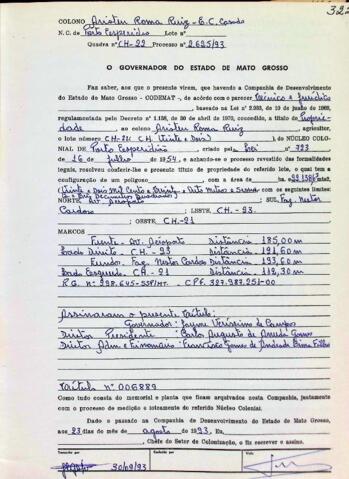 322
COLONO Arister Roma Ruiz - E.C. Casado
N.C. de Porto Esperidião Lote nº
Quadra nº CH-22 Processo nº 2.625/93
O GOVERNADOR DO ESTADO DE MATO GROSSO
Faz saber, aos que o presente virem, que havendo a Companhia de Desenvolvimento
do Estado de Mato Grosso - CODEMAT -, de acordo com o parecer Técnico e Jurídico
baseado na Lei nº
regulamentada pelo Decreto nº 1.138, de 30 de abril de 1970, concedido, a título de Proprie-
dade, ao colono Arister Roma Ruiz, agricultor,
o lote número CH-22 (CH. Vinte e Dois) do NÚCLEO COLO-
NIAL DE Porto Esperidião, criado pela Lei nº 723
de 16 de julho 1.954, e achando-se o processo revestido das formalidades
legais, resolveu conferir-lhe o presente título de propriedade do referido lote, o qual tem a
configuração de um polígono com a área de
(Vinte e Dois Mil, Cento e Trinta e Oito Metros e
com os seguintes limites:
NORTE: Av. Aeroporto SUL: Faz. Nestor
Cardoso LESTE: CH-23.
OESTE: CH-21
MARCOS
Frente - Av. Aeroporto Distância 185,00m
Bordo Direito - CH-23 Distância 121,60m
Fundo - Faz. Nestor Cardoso Distância 193,60m
Bordo Esquerdo - CH-21 Distância 112,30m
R.G. nº 298.645-SSP/MT. - CPF. 327.982.251-00
Assinaram o presente título:
Governador: Jayme Veríssimo de Campos
Diretor Presidente: Carlos Augusto de Arruda Gomes
Diretor Adm e Financeiro: Francisco Gomes de Andrade Lima Filho
Título nº 006889
Como tudo consta do memorial e planta que ficam arquivados nesta Companhia, juntamente
com o processo de medição e loteamento do referido Núcleo Colonial.
Dado e passado na Companhia de Desenvolvimento do Estado de Mato Grosso,
aos 23 dias do mês de agosto de 1993, Eu,
, Chefe do Setor de Colonização, o fiz escrever e assino.
Transcrito por Em Visto
30/09/93